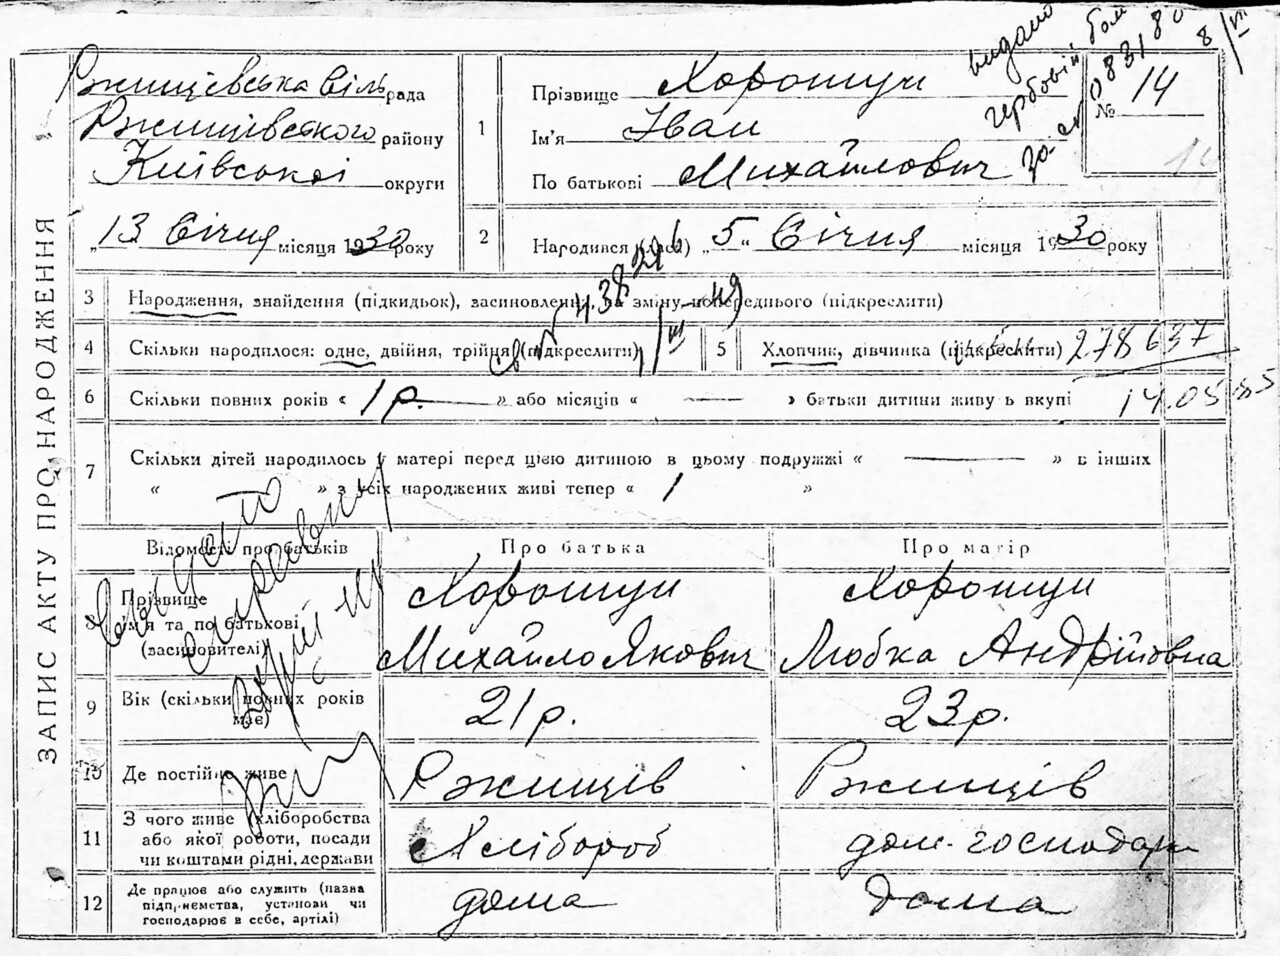 ЗАПИС АКТУ ПРО НАРОДЖЕННЯ
Ржищівська сільрада
Ржищівського району
Київської округи
„13 Січня місяця 1930 року
1
Прізвище Хорошун
Ім'я Іван
По батькові Михайлович
№ 14
14
видано
гербовій
за
083180
8/III
2
Народився (лась) „ 5 “ Січня місяця 1930 року
3
Народження, знайдення (підкидьок), засиновлення, на зміну попереднього (підкреслити)
438
4
Скільки народилося: одне, двійня, трійня (підкреслити)
5
Хлопчик, дівчинка (підкреслити) 278637
6
Скільки повних років « 1 р. » або місяців « — » батьки дитини живуть вкупі
14.05
7
Скільки дітей народилось у матері перед цією дитиною в цьому подружжі « — » в інших
« » з усіх народжених живі тепер « 1 »
Відомості про батьків
Про батька
Про матір
8
Прізвище
ім'я та по батькові
(засиновителі)
Хорошун
Михайло Якович
Хорошун
Любка Андрійовна
9
Вік (скільки повних років
має)
21 р.
23 р.
10
Де постійно живе
Ржищів
Ржищів
11
З чого живе хліборобства
або якої роботи, посади
чи коштами рідні, держави
Хлібороб
дом. господар
12
Де працює або служить (назва
підприємства, установи чи
господарює в себе, артілі)
дома
дома